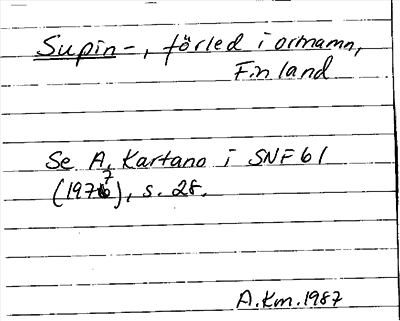 Supin-, förled i ormamn,
Finland
Se A. Kartano i SNF 61
(1977), s. 28.
A.Km.1987